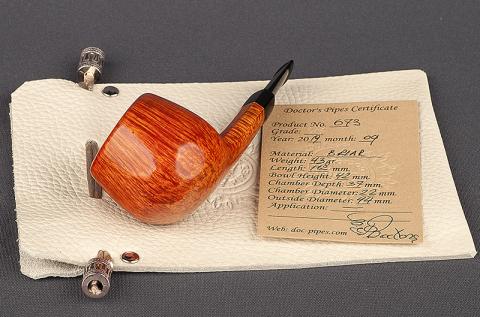 Doctor's Pipes Certificate
Product No. 673
Grade:
Year: 2019 month: 09
Material: BRIAR
Weight: 43 gr.
Length: mm.
Bowl Height: 42 mm.
Chamber Depth: 37 mm.
Chamber Diameter: 22 mm.
Outside Diameter: 44 mm.
Application:
Web: doc-pipes.com Doctors